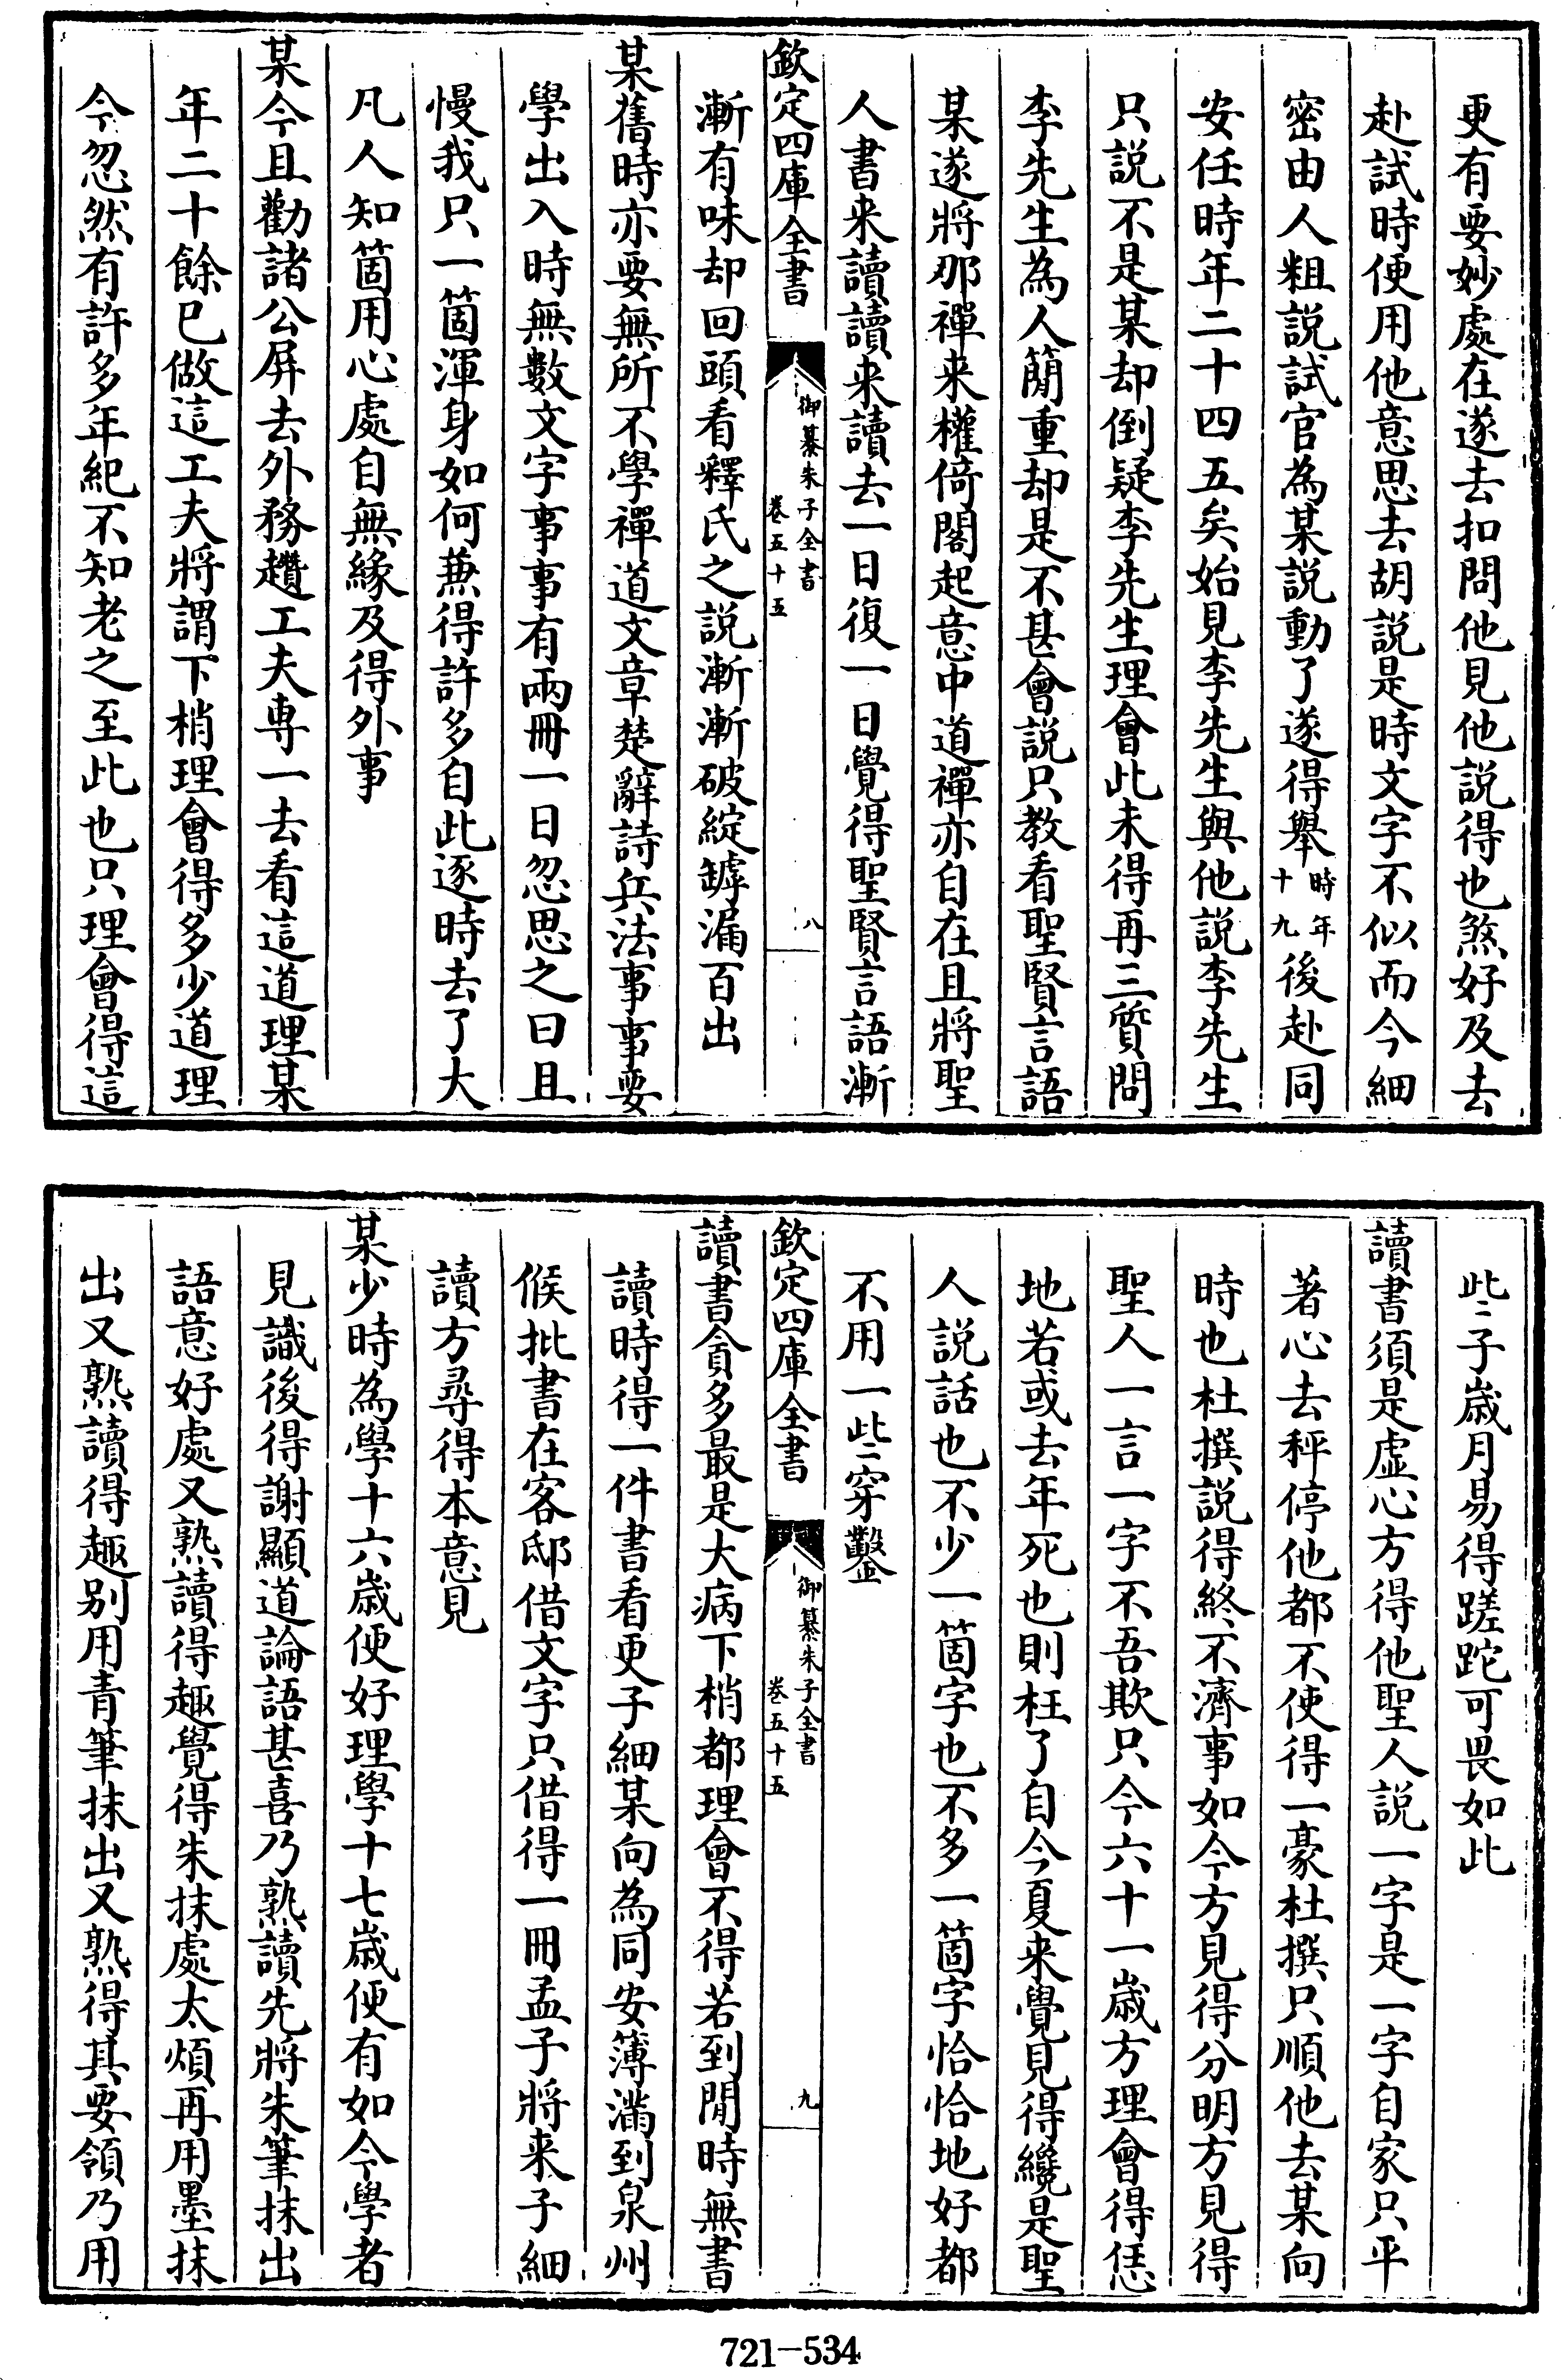 更有要妙處在遂去扣問他見他説得也煞好及去
赴試時便用他意思去胡説是時文字不似而今細
密由人粗説試官為某説動了遂得舉時年十九後赴同
安任時年二十四五矣始見李先生與他説李先生
只説不是某却倒疑李先生理會此未得再三質問
李先生為人簡重却是不甚會説只教看聖賢言語
某遂將那禪来權倚閣起意中道禪亦自在且將聖
人書来讀讀来讀去一日復一日覺得聖賢言語漸
欽定四庫全書
御纂朱子全書
卷五十五
八
漸有味却回頭看釋氏之説漸漸破綻罅漏百出
某舊時亦要無所不學禪道文章楚辭詩兵法事事要
學出入時無數文字事事有兩冊一日忽思之曰且
慢我只一箇渾身如何兼得許多自此逐時去了大
凡人知箇用心處自無緣及得外事
某今且勸諸公屏去外務趲工夫専一去看這道理某
年二十餘已做這工夫將謂下梢理會得多少道理
今忽然有許多年紀不知老之至此也只理會得這
些子歲月易得蹉跎可畏如此
讀書須是虛心方得他聖人説一字是一字自家只平
著心去秤停他都不使得一豪杜撰只順他去某向
時也杜撰説得終不濟事如今方見得分明方見得
聖人一言一字不吾欺只今六十一歲方理會得恁
地若或去年死也則枉了自今夏来覺見得纔是聖
人説話也不少一箇字也不多一箇字恰恰地好都
不用一些穿鑿
欽定四庫全書
御纂朱子全書
卷五十五
九
讀書貪多最是大病下梢都理會不得若到閒時無書
讀時得一件書看更子細某向為同安簿滿到泉州
候批書在客邸借文字只借得一冊孟子將来子細
讀方尋得本意見
某少時為學十六歲便好理學十七歲便有如今學者
見識後得謝顯道論語甚喜乃熟讀先將朱筆抹出
語意好處又熟讀得趣覺得朱抹處太煩再用墨抹
出又熟讀得趣别用青筆抹出又熟得其要領乃用
721-534